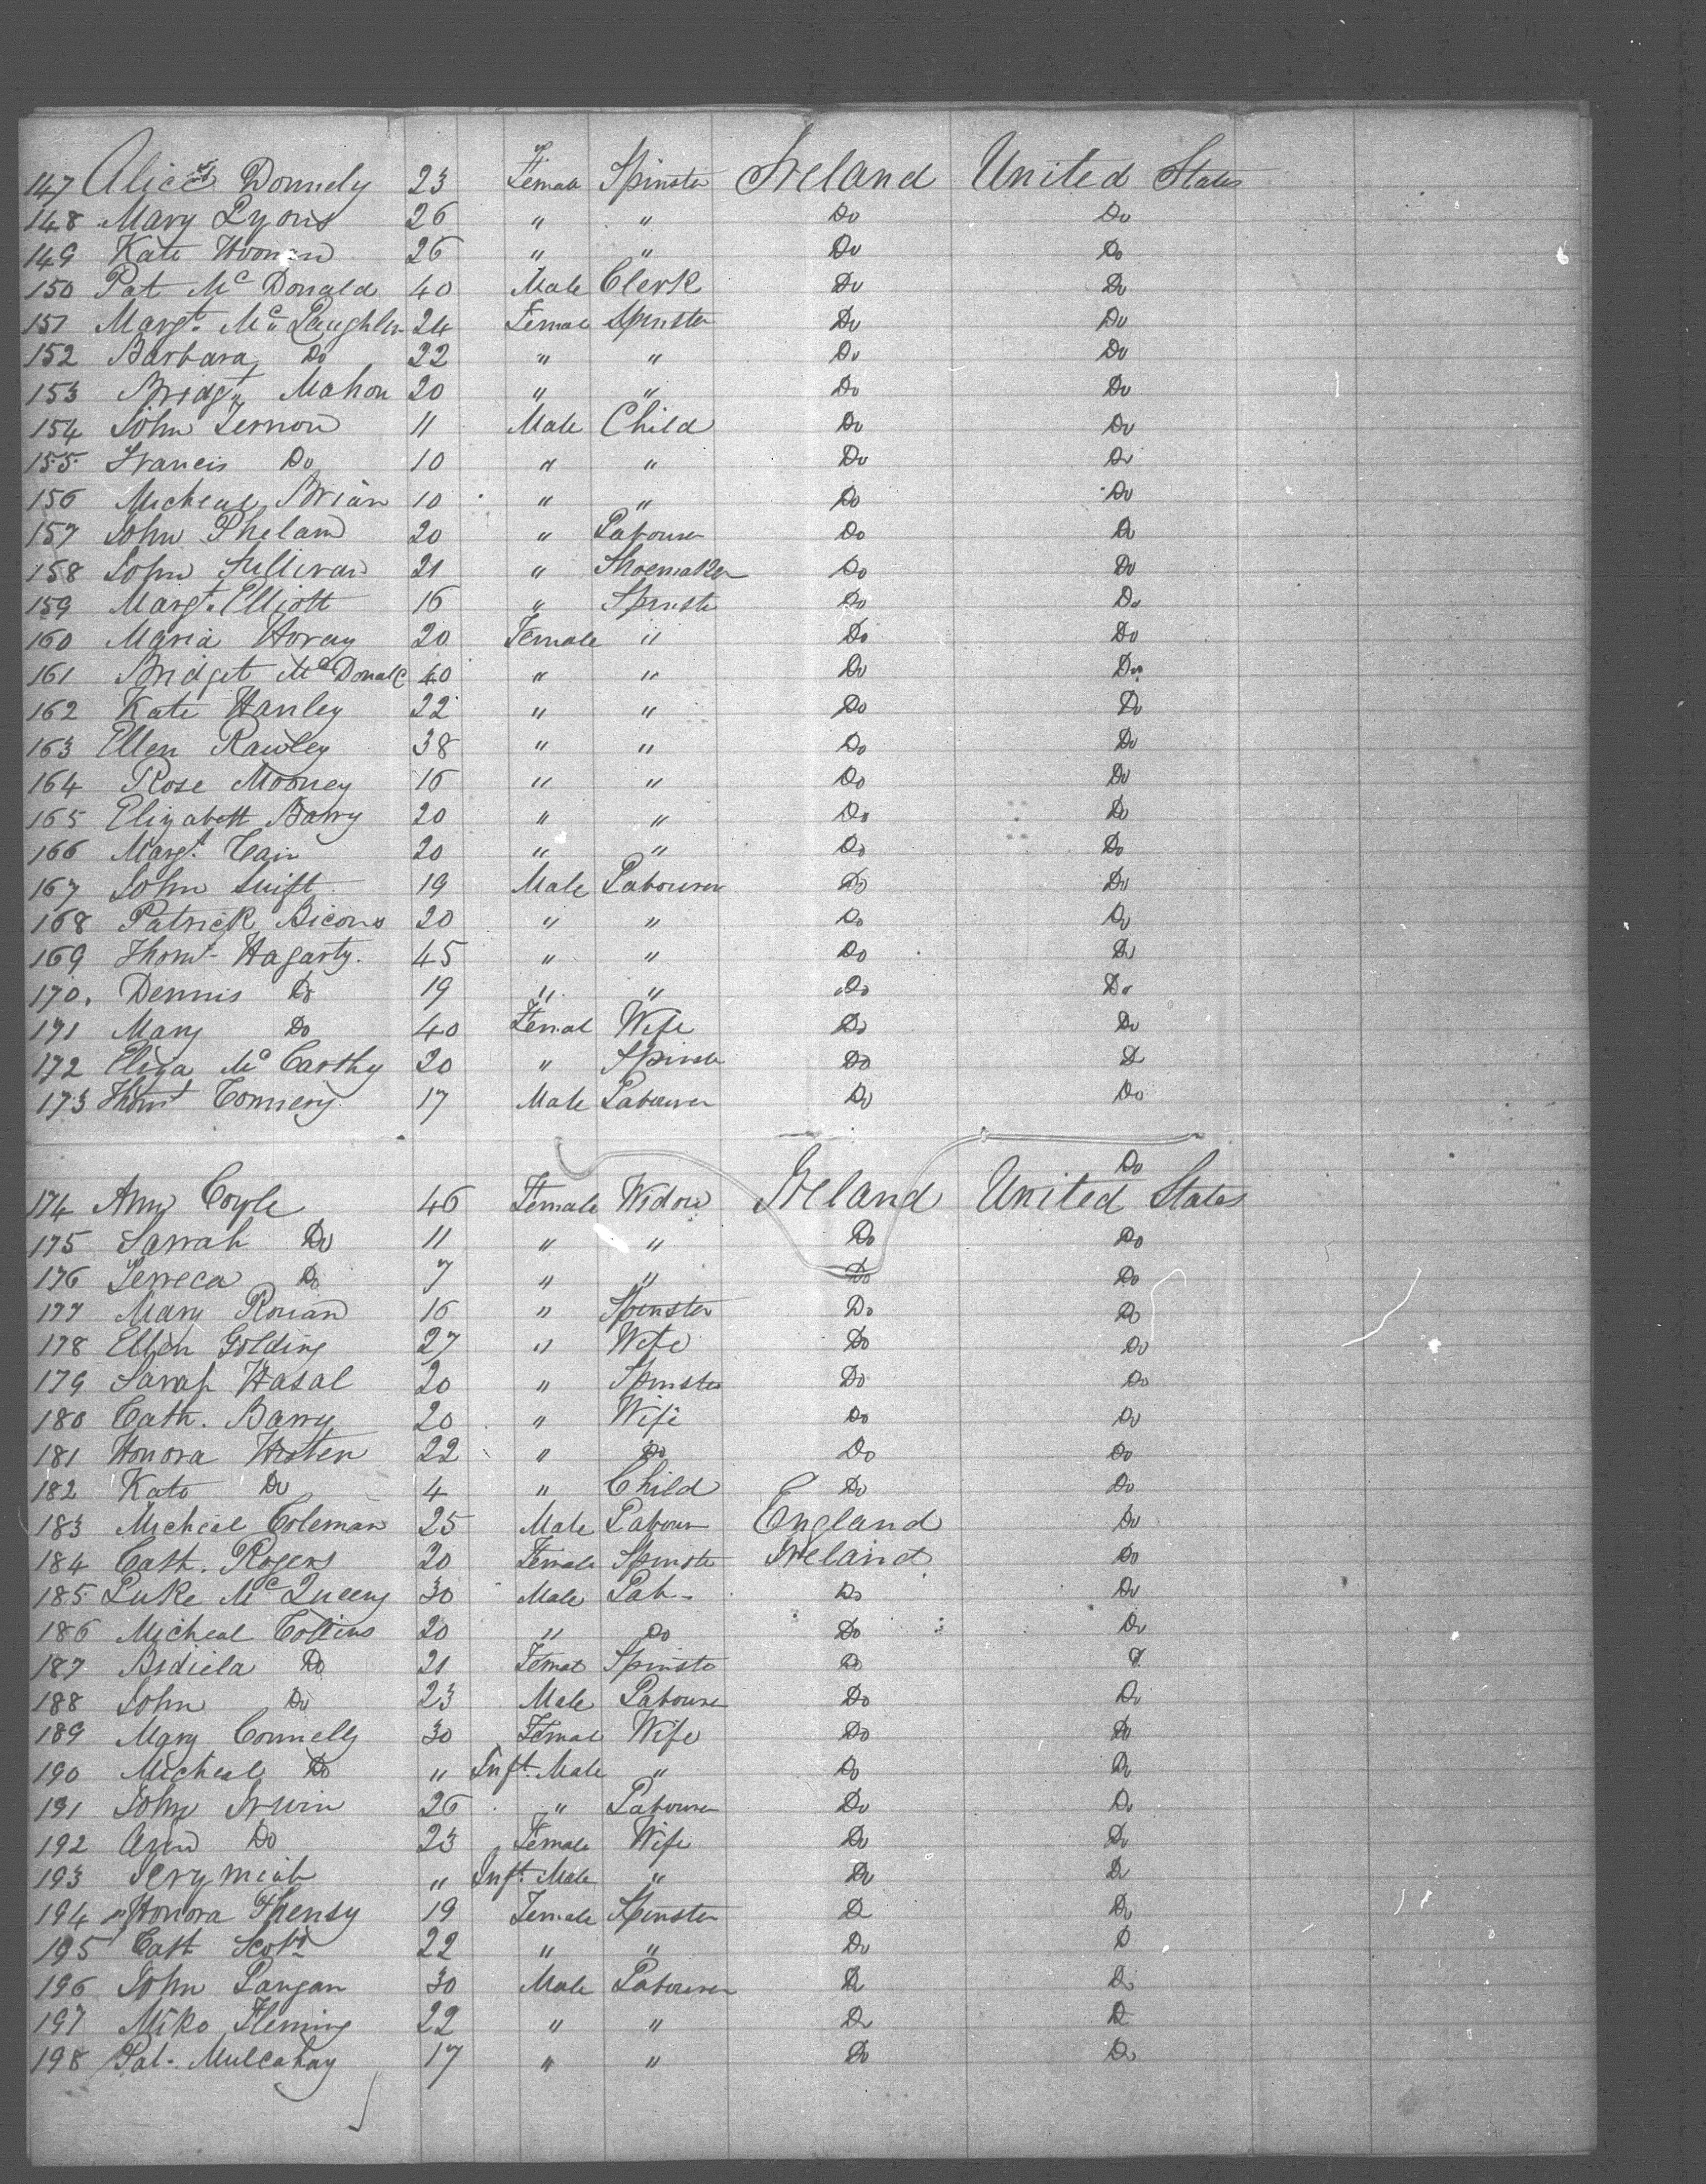 147 Alice Donnely 23 Female Spinster Ireland United States
148 Mary Lyons 26 " " Do Do
149 Kate 26 " " Do Do
150 Pat Mc Donald 40 Male Clerk Do Do
151 Margt. Mc Laughlin 24 Female Spinster Do Do
152 Barbara Do 22 " " Do Do
153 Bridgt Mahon 20 " " Do Do
154 John 11 Male Child Do Do
155 Francis Do 10 " " Do Do
156 Micheal Brian 10 " " Do Do
157 John Phelan 20 " Labourer Do Do
158 John Sullivan 21 " Shoemaker Do Do
159 Margt. Elliott 16 " Spinster Do Do
160 Maria 20 Female " Do Do
161 Bridget Mc Donald 40 " " Do Do
162 Kate Hanley 22 " " Do Do
163 Ellen Rawley 38 " " Do Do
164 Rose Mooney 16 " " Do Do
165 Elizabett Barry 20 " " Do Do
166 Margt. Cain 20 " " Do Do
167 John Swift 19 Male Labourer Do Do
168 Patrick 20 " " Do Do
169 Thoms Hagarty. 45 " " Do Do
170. Dennis Do 19 " " Do Do
171 Mary Do 40 Femal Wife Do Do
172 Eliza Mc Carthy 20 " Spinster Do Do
173 Thoms 17 Male Labourer Do Do
Do
174 Ann Coyle 46 Female Widow Ireland United States
175 Sarrah Do 11 " " Do Do
176 Do 7 " " Do Do
177 Mary Ronan 16 " Spinster Do Do
178 Ellen Golding 27 " Wife Do Do
179 Sarah Hasal 20 " Spinster Do Do
180 Cath. Barry 20 " Wife Do Do
181 Honora 22 " Do Do Do
182 Kate Do 4 " Child Do Do
183 Micheal Coleman 25 Male Labour England Do
184 Cath. Rogers 20 Female Spinster Ireland Do
185 Luke Mc Queeny 30 Male Lab- Do Do
186 Micheal Collins 20 " Do Do Do
187 Do 21 Femal Spinster Do
188 John Do 23 Male Labourer Do Do
189 Mary Connelly 30 Femal Wife Do Do
190 Micheal Do " Inft. Male " Do Do
191 John Irwin 26 " Labourer Do Do
192 Ann Do 23 Female Wife Do Do
193 Jerymiah " Inft. Male " Do Do
194 Honora 19 Female Spinster Do Do
195 Cath 22 " " Do D
196 John Langan 30 Male Labourer Do Do
197 Mike Fleming 22 " " Do Do
198 Pat. Mulcahay 17 " " Do Do